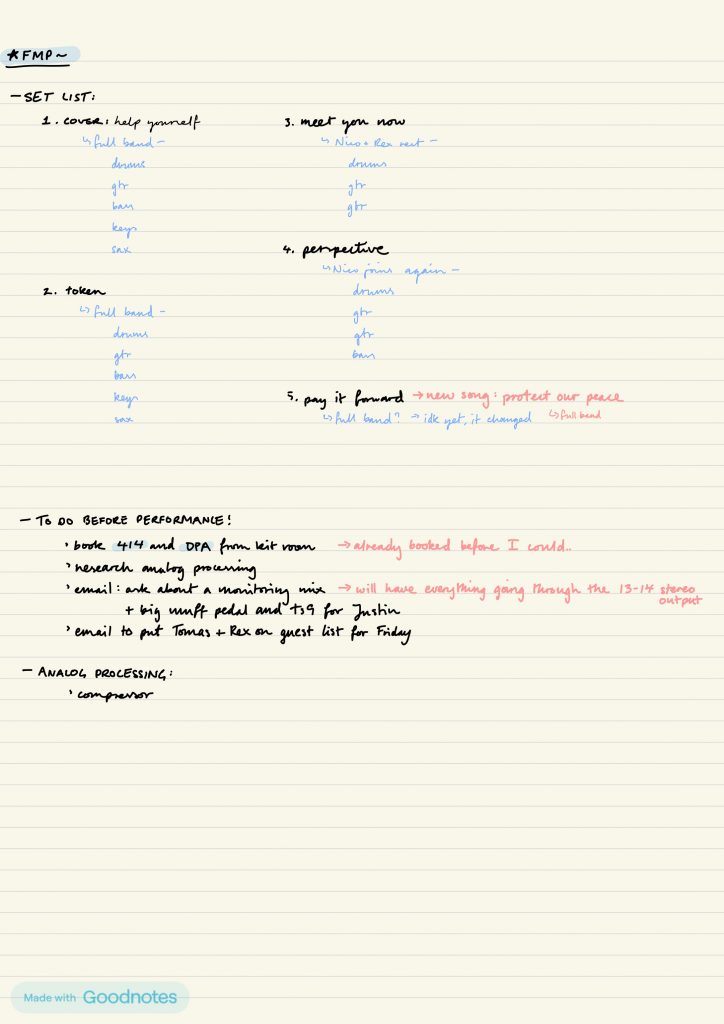 ★FMP~
- SET LIST:
1. COVER: help yourself
↳ full band -
drums
gtr
bass
keys
sax
2. token
↳ full band -
drums
gtr
bass
keys
sax
3. meet you now
↳ Nico + Rex rest -
drums
gtr
gtr
4. perspective
↳ Nico joins again -
drums
gtr
gtr
bass
5. pay it forward → new song: protect our peace
↳ full band? → idk yet, it changed ↳ full band
- TO DO BEFORE PERFORMANCE!
• book 414 and DPA from kit room → already booked before I could..
• research analog processing
• email: ask about a monitoring mix → will have everything going through the 13-14 stereo output
+ big muff pedal and TS9 for Justin
• email to put Tomas + Rex on guest list for Friday
- ANALOG PROCESSING:
• compressor
Made with Goodnotes